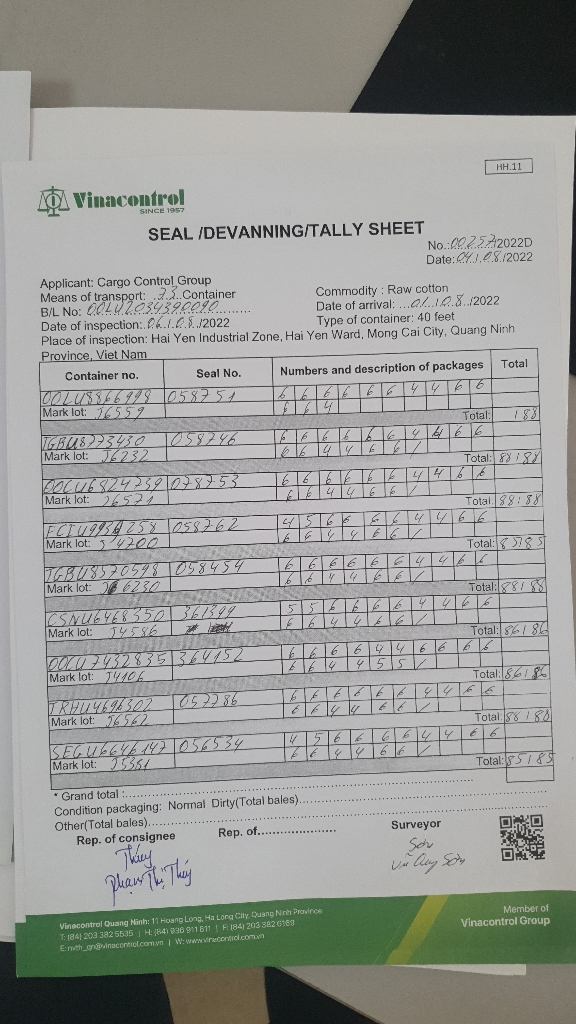 HH.11
Vinacontrol
SINCE 1957
SEAL /DEVANNING/TALLY SHEET
No.:00257/2022D
Date:04/08/2022
Applicant: Cargo Control Group
Means of transport: 33 Container
Commodity : Raw cotton
B/L No: OOLU2034390090
Date of arrival: 01/08/2022
Date of inspection: 06/08/2022
Type of container: 40 feet
Place of inspection: Hai Yen Industrial Zone, Hai Yen Ward, Mong Cai City, Quang Ninh
Province, Viet Nam
Container no. Seal No. Numbers and description of packages Total
OOLU8866998 058751 6 6 6 6 6 6 4 4 6 6
Mark lot: J6559 6 6 4
Total: 188
TGBU8773430 058746 6 6 6 6 6 6 4 4 6 6
Mark lot: J6232 6 6 4 4 6 6 /
Total: 88188
OOCU6824739 078753 6 6 6 6 6 6 4 4 6 6
Mark lot: J6571 6 6 4 4 6 6 /
Total: 88188
258 058762 4 5 6 6 6 6 4 4 6 6
Mark lot: J4700 6 6 4 4 6 6 /
Total: 85185
TGBU8570598 058454 6 6 6 6 6 6 4 4 6 6
Mark lot: 6230 6 6 4 4 6 6 /
Total: 88188
CSNU6468350 361399 5 5 6 6 6 6 4 4 6 6
Mark lot: J4586 6 6 4 4 6 6 /
Total: 86186
OOCU7432835 364152 6 6 6 6 4 4 6 6 6 6
Mark lot: J4106 6 6 4 4 5 5 /
Total: 86186
TRHU4696302 057786 6 6 6 6 6 6 4 4 6 6
Mark lot: J6562 6 6 4 4 6 6 /
Total: 88188
SEGU6646147 056534 4 5 6 6 6 6 4 4 6 6
Mark lot: J5351 6 6 4 4 6 6 /
Total: 85185
* Grand total :
Condition packaging: Normal Dirty(Total bales)
Other(Total bales)
Rep. of consignee Rep. of Surveyor
Thúy
Phạm Thị Thúy
Sơn
Vũ Sơn
Vinacontrol Quang Ninh: 11 Hoang Long, Ha Long City, Quang Ninh Province
T: (84) 203 382 5535 | H: (84) 936 911 811 | F: (84) 203 382 6169
E: nvth_qn@vinacontrol.com.vn | W: www.vinacontrol.com.vn
Member of
Vinacontrol Group